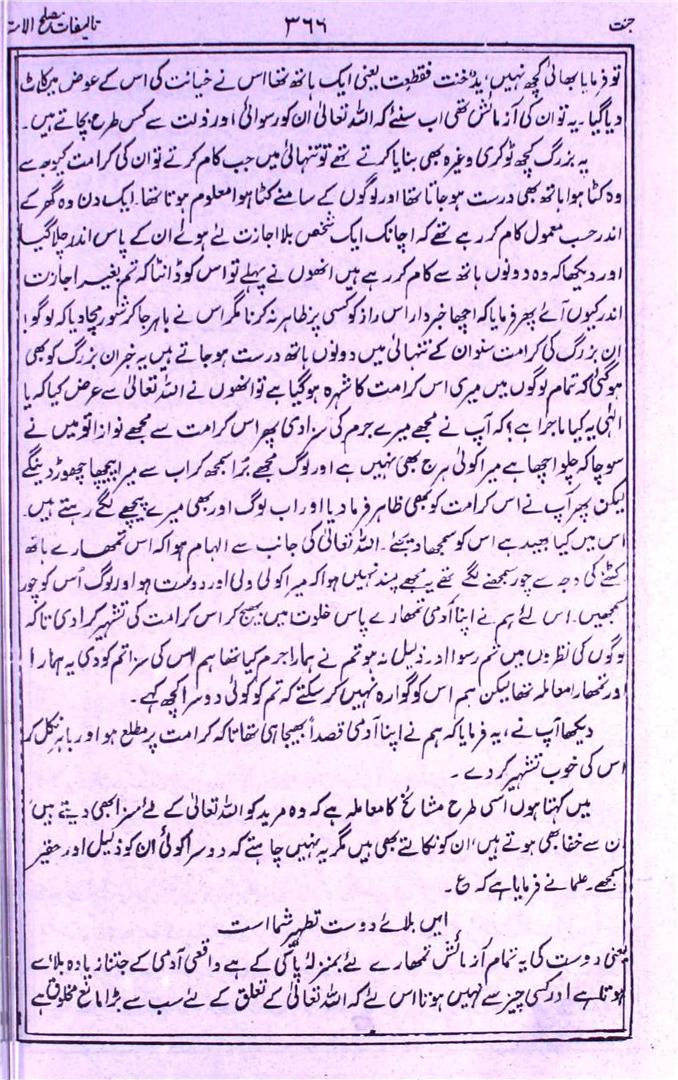 جنت ۳۶۶ تالیفات مصلح الامت
تو فرمایا بھائی کچھ نہیں، ید خنت فقطعت یعنی ایک ہاتھ تھا اس نے خیانت کی اس کے عوض میں کاٹ
دیا گیا۔ یہ تو ان کی آزمائش تھی اب سنئے کہ اللہ تعالیٰ ان کو رسوائی اور ذلت سے کس طرح بچاتے ہیں۔
یہ بزرگ کچھ ٹوکری وغیرہ بھی بنایا کرتے تھے تو تنہائی میں جب کام کرتے تو ان کی کرامت کیوجہ سے
وہ کٹا ہوا ہاتھ بھی درست ہو جاتا تھا اور لوگوں کے سامنے کٹا ہوا معلوم ہوتا تھا۔ ایک دن وہ گھر کے
اندر حسب معمول کام کر رہے تھے کہ اچانک ایک شخص بلا اجازت لئے ہوئے ان کے پاس اندر چلا گیا
اور دیکھا کہ وہ دونوں ہاتھ سے کام کر رہے ہیں انھوں نے پہلے تو اس کو ڈانٹا کہ تم بغیر اجازت
اندر کیوں آئے پھر فرمایا کہ اچھا خبردار اس راز کو کسی پر ظاہر نہ کرنا مگر اس نے باہر جا کر شور مچا دیا کہ لوگو!
ان بزرگ کی کرامت سنو ان کے تنہائی میں دونوں ہاتھ درست ہو جاتے ہیں یہ خبر ان بزرگ کو بھی
ہو گئی کہ تمام لوگوں میں میری اس کرامت کا شہرہ ہو گیا ہے تو انھوں نے اللہ تعالیٰ سے عرض کیا کہ یا
الٰہی یہ کیا ماجرا ہے؟ کہ آپ نے مجھے میرے جرم کی سزا دی پھر اس کرامت سے مجھے نوازا تو میں نے
سوچا کہ چلو اچھا ہے میرا کوئی ہرج بھی نہیں ہے اور لوگ مجھے برا سمجھ کر اب سے میرا پیچھا چھوڑ دینگے
لیکن پھر آپ نے اس کرامت کو بھی ظاہر فرما دیا اور اب لوگ اور بھی میرے پیچھے لگے رہتے ہیں۔
اس میں کیا بھید ہے اس کو سمجھا دیجئے۔ اللہ تعالیٰ کی جانب سے الہام ہوا کہ اس تمھارے ہاتھ
کٹنے کی وجہ سے چور سمجھنے لگے تھے یہ مجھے پسند نہیں ہوا کہ میرا کوئی ولی اور دوست ہو اور لوگ اُس کو چور
سمجھیں۔ اس لئے ہم نے اپنا آدمی تمھارے پاس خلوت میں بھیج کر اس کرامت کی تشہیر کرا دی تاکہ
لوگوں کی نظروں میں تم رسوا اور ذلیل نہ ہو تم نے ہمارا جرم کیا تھا ہم اس کی سزا تم کو دی یہ ہمارا
اور تمھارا معاملہ تھا لیکن ہم اس کو گوارہ نہیں کر سکتے کہ تم کو کوئی دوسرا کچھ کہے۔
دیکھا آپ نے، یہ فرمایا کہ ہم نے اپنا آدمی قصداً بھیجا ہی تھا تاکہ کرامت پر مطلع ہو اور باہر نکل کر
اس کی خوب تشہیر کر دے۔
میں کہتا ہوں اسی طرح مشائخ کا معاملہ ہے کہ وہ مرید کو اللہ تعالیٰ کے لئے سزا بھی دیتے ہیں
ان سے خفا بھی ہوتے ہیں، ان کو نکالتے بھی ہیں مگر یہ نہیں چاہتے کہ دوسرا کوئی ان کو ذلیل اور حقیر
سمجھے۔ علما نے فرمایا ہے کہ ع۔
ایں بلائے دوست تطہیر شما است
یعنی دوست کی یہ تمام آزمائش تمھارے لئے بمنزلۂ پاکی کے ہے واقعی آدمی کے جتنا زیادہ بلا سے
ہوتا ہے اور کسی چیز سے نہیں ہوتا اس لئے کہ اللہ تعالیٰ کے تعلق کے لئے سب سے بڑا مانع مخلوق ہے